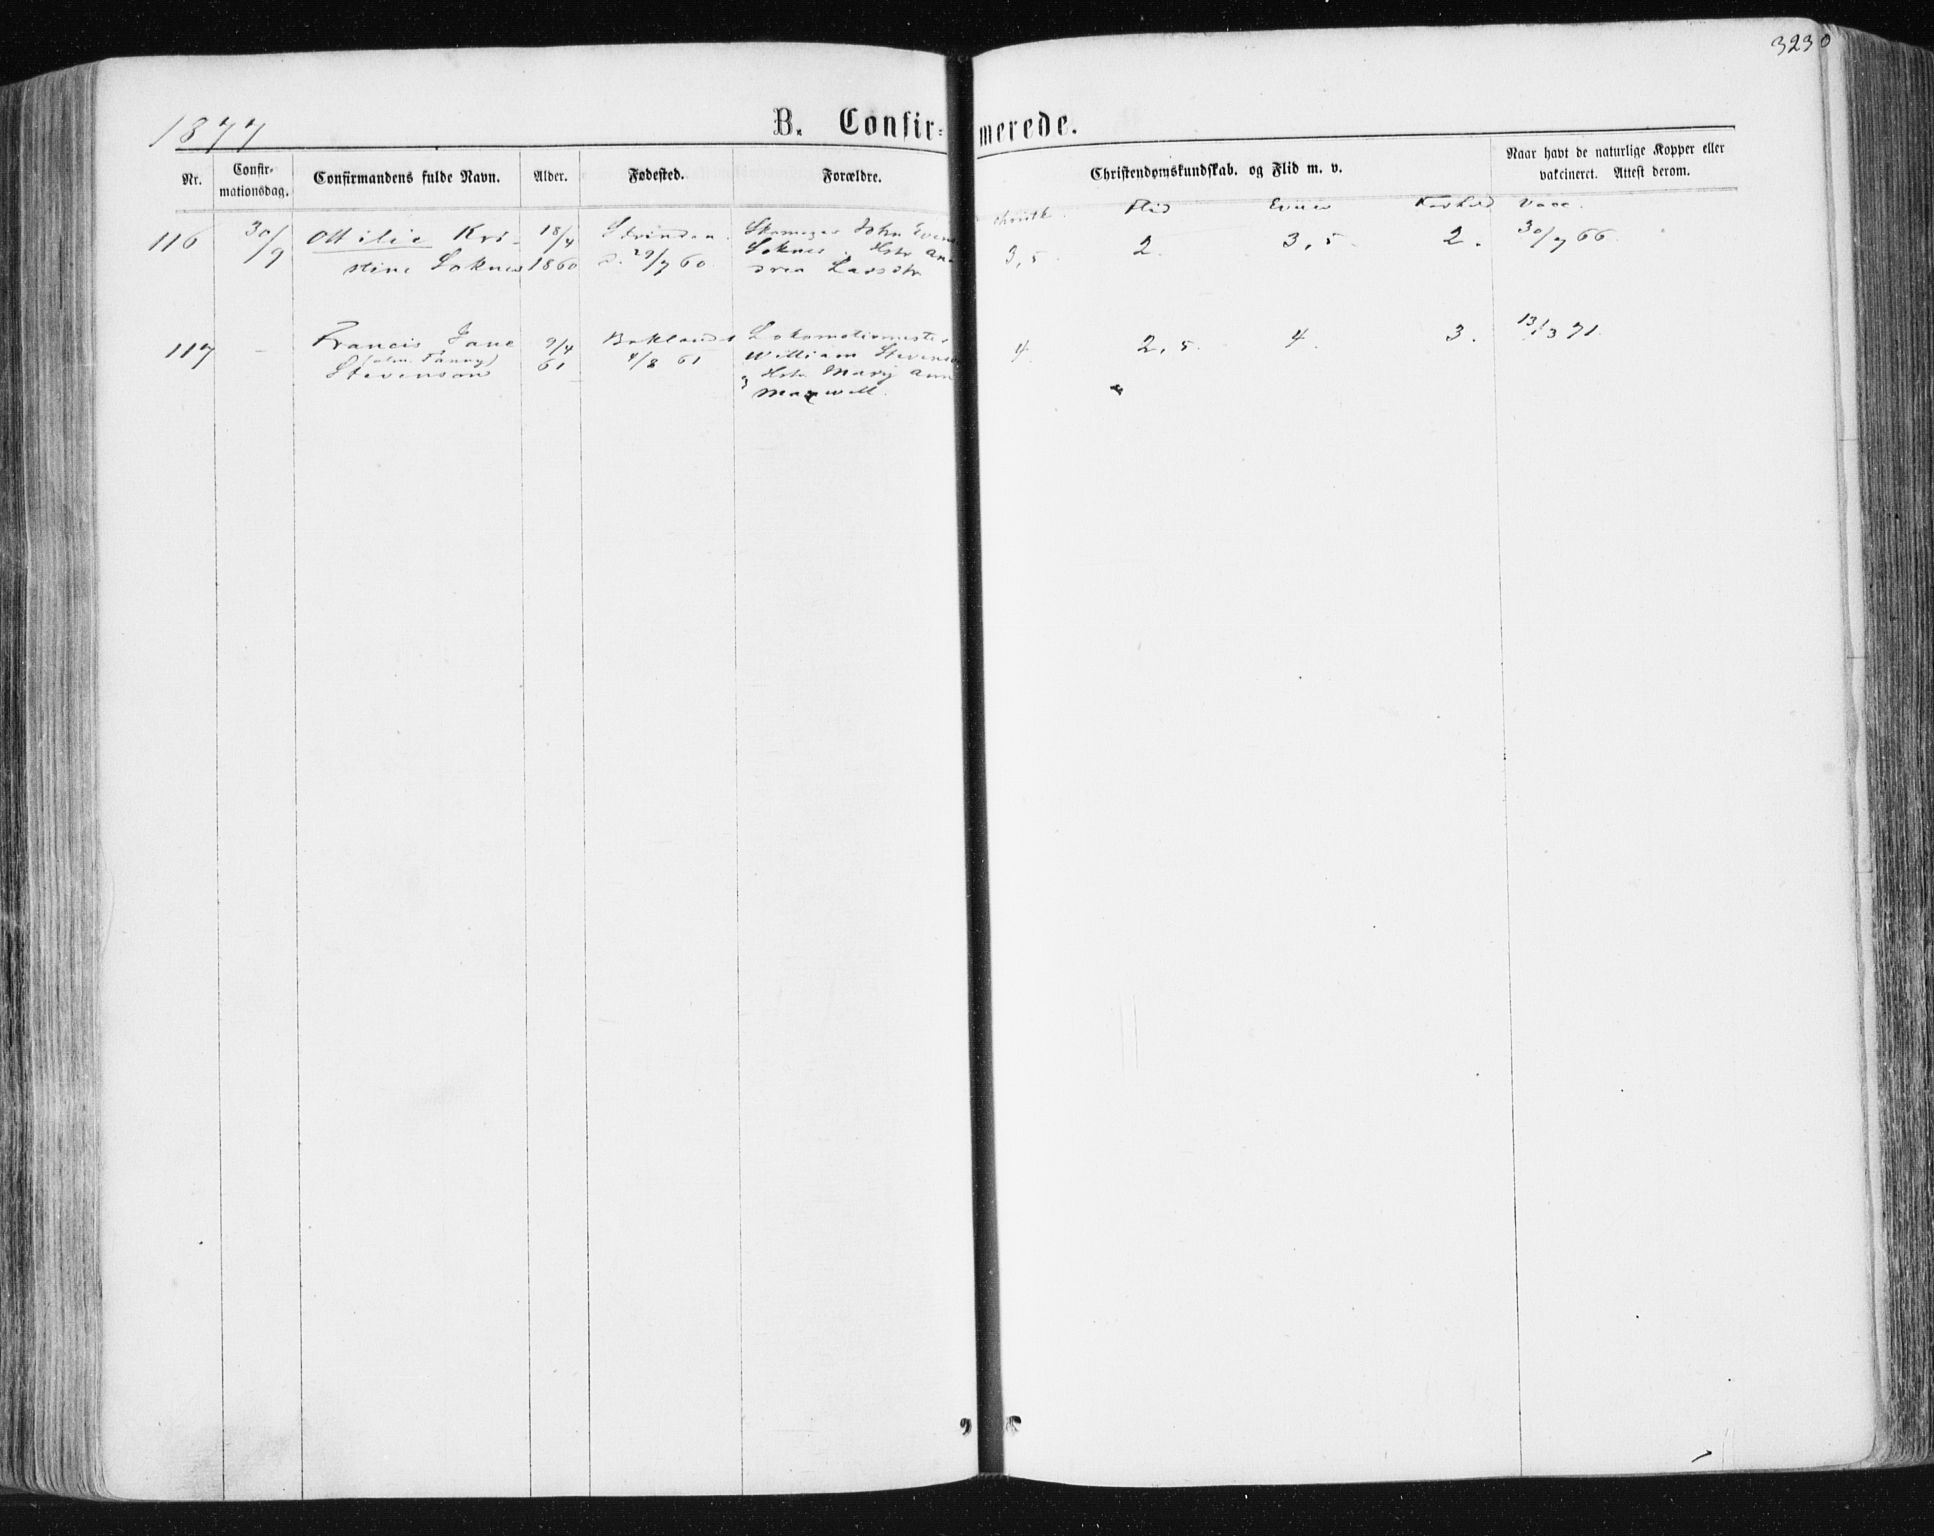 3230
1877
B. Confir-merede.
Nr.
Confir-
mationsdag.
Confirmandens fulde Navn.
Alder.
Fødested.
Forældre.
Christendomskundskab. og Flid m. v.
Naar havt de naturlige Kopper eller
vakcineret. Attest derom.
Flid Evner Forhold Vacc.
116 30/9 Ottilie Kri- 18/4 Strinden. Skomager John Evens
stine Soknes 1860 d. 29/7 60. Soknes. Hstr An-
drea Larsdtr
3,5 2. 3,5. 2. 30/7 66.
117 - Francis Jane 9/4 Baklandet
(alm. Fanny) 61 4/8 61 William Stevenson
Stevenson og Hstr Mary Ann
Maxwell.
4. 2,5. 4. 3. 13/3 71.